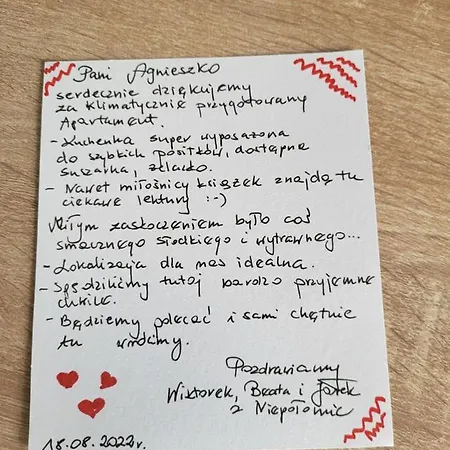 Pani Agnieszko
serdecznie dziękujemy
za klimatycznie przygotowany
Apartament.
- Kuchenka super wyposażona
do szybkich posiłków, dostępna
suszarka, żelazko.
- Nawet miłośnicy książek znajdą tu
ciekawe lektury :-)
Miłym zaskoczeniem było coś
smacznego słodkiego i wytrawnego...
- Lokalizacja dla nas idealna.
- Spędziliśmy tutaj bardzo przyjemne
chwile.
- Będziemy polecać i sami chętnie
tu wrócimy.
Pozdrawiamy
Wiktorek, Beata i
z Niepołomic
18.08.2022r.